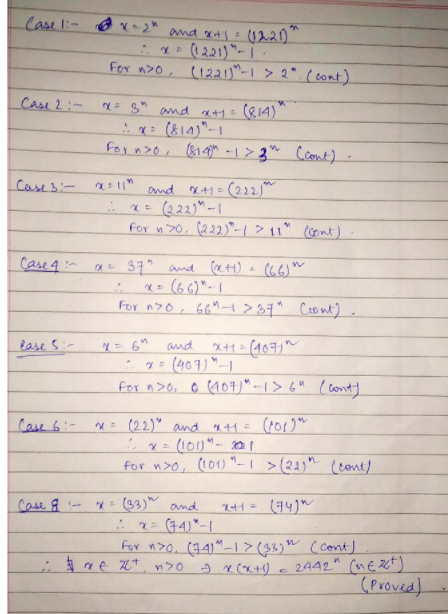 Case 1:- x = 2ⁿ and x+1 = (1221)ⁿ
∴ x = (1221)ⁿ-1.
For n>0, (1221)ⁿ-1 > 2ⁿ. (cont)
Case 2:- x = 3ⁿ and x+1 = (814)ⁿ
∴ x = (814)ⁿ-1
For n>0, (814)ⁿ -1 > 3ⁿ (cont).
Case 3:- x = 11ⁿ and x+1 = (222)ⁿ
∴ x = (222)ⁿ-1
For n>0, (222)ⁿ-1 > 11ⁿ (cont).
Case 4:- x = 37ⁿ and (x+1) = (66)ⁿ
∴ x = (66)ⁿ-1
For n>0, 66ⁿ-1 > 37ⁿ (cont).
Case 5:- x = 6ⁿ and x+1 = (407)ⁿ
∴ x = (407)ⁿ-1
For n>0, (407)ⁿ-1 > 6ⁿ (cont)
Case 6:- x = (22)ⁿ and x+1 = (101)ⁿ
∴ x = (101)ⁿ- 1
For n>0, (101)ⁿ-1 > (22)ⁿ (cont)
Case 8 :- x = (33)ⁿ and x+1 = (74)ⁿ
∴ x = (74)ⁿ-1
For n>0, (74)ⁿ-1 > (33)ⁿ (cont).
∴ x ∈ Z⁺, n>0 ⇒ x(x+1) = 2442ⁿ (n∈Z⁺)
(Proved)